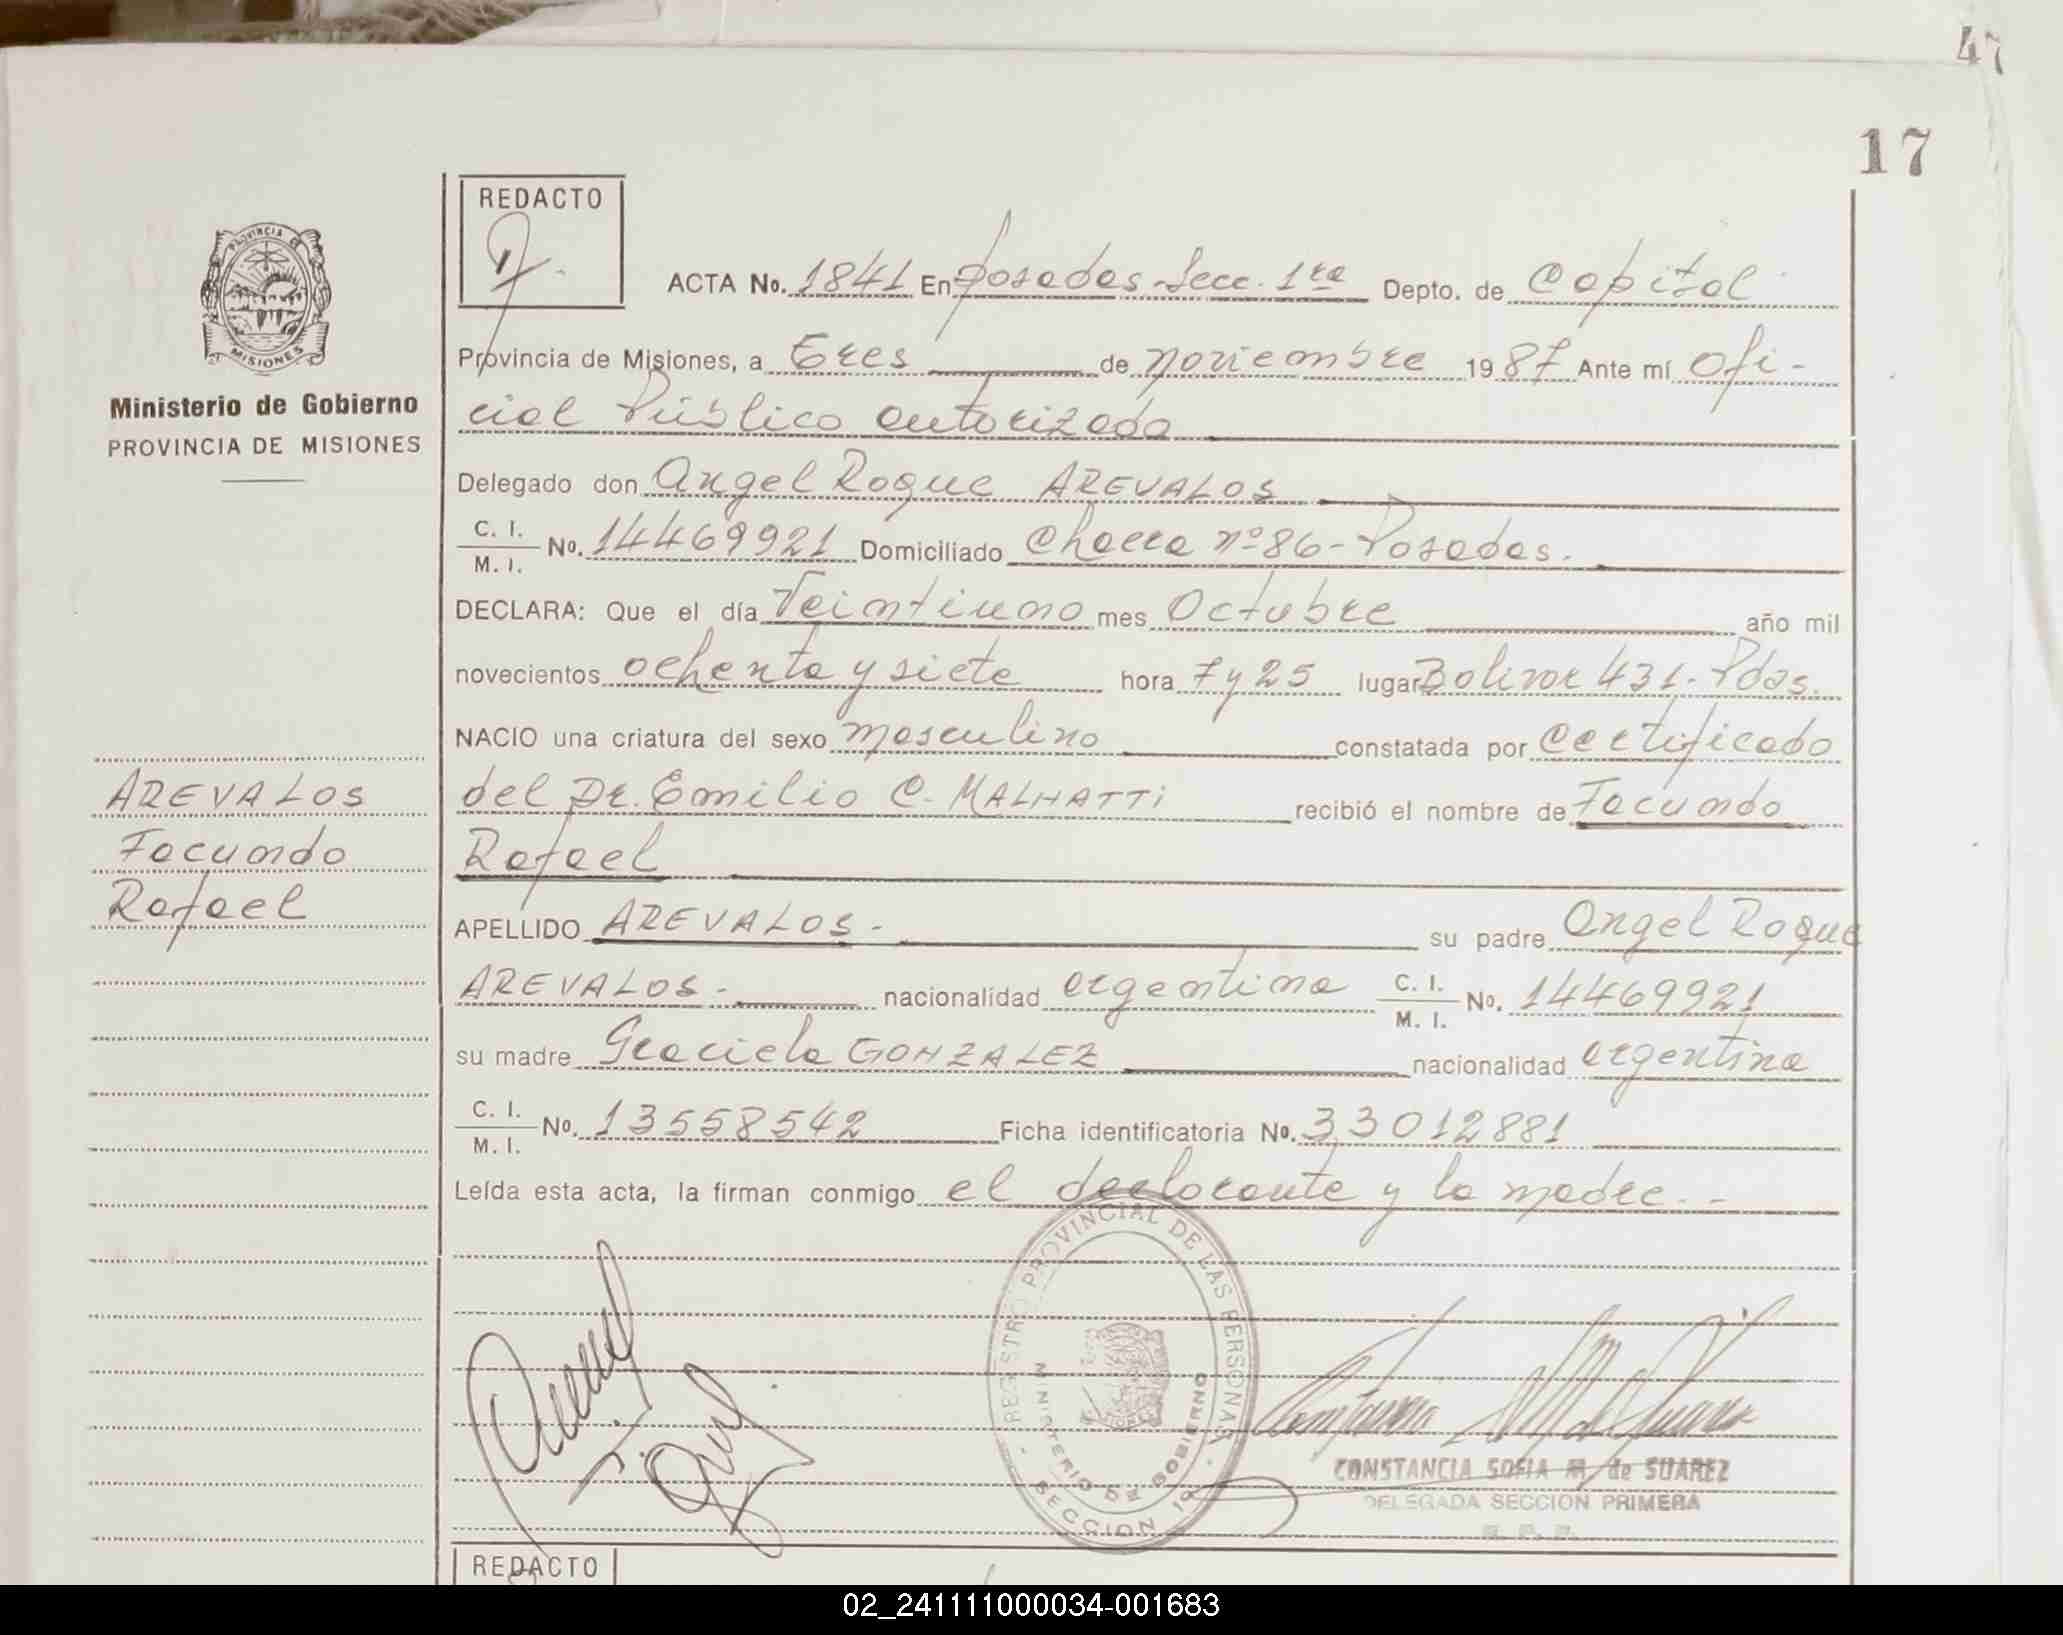 47
17
REDACTO
PROVINCIA DE
MISIONES
ACTA No. 1841 En Posadas-Secc. 1ra Depto. de Capital
Provincia de Misiones, a tres de noviembre 1987 Ante mí Ofi-
cial Público autorizado
Ministerio de Gobierno
PROVINCIA DE MISIONES
Delegado don Angel Roque AREVALOS
C. I.
M. I. No. 14469921 Domiciliado Chacra nº 86-Posadas.
DECLARA: Que el día Veintiuno mes Octubre año mil
novecientos ochenta y siete hora 7 y 25 lugar Bolivar 431-Pdas.
NACIO una criatura del sexo masculino constatada por certificado
del Dr. Emilio C. MALHATTi recibió el nombre de Facundo
Rafael
AREVALOS
Facundo
Rafael
APELLIDO AREVALOS.- su padre Angel Roque
AREVALOS.- nacionalidad argentina C. I.
M. I. No. 14469921
su madre Graciela GONZALEZ nacionalidad argentina
C. I.
M. I. No. 13558542 Ficha identificatoria No. 33012881
Leída esta acta, la firman conmigo el declarante y la madre.-
REGISTRO PROVINCIAL DE LAS PERSONAS
MINISTERIO DE GOBIERNO
SECCION 1a
CONSTANCIA SOFIA M. de SUAREZ
DELEGADA SECCION PRIMERA
R. P. P.
REDACTO
02_241111000034-001683